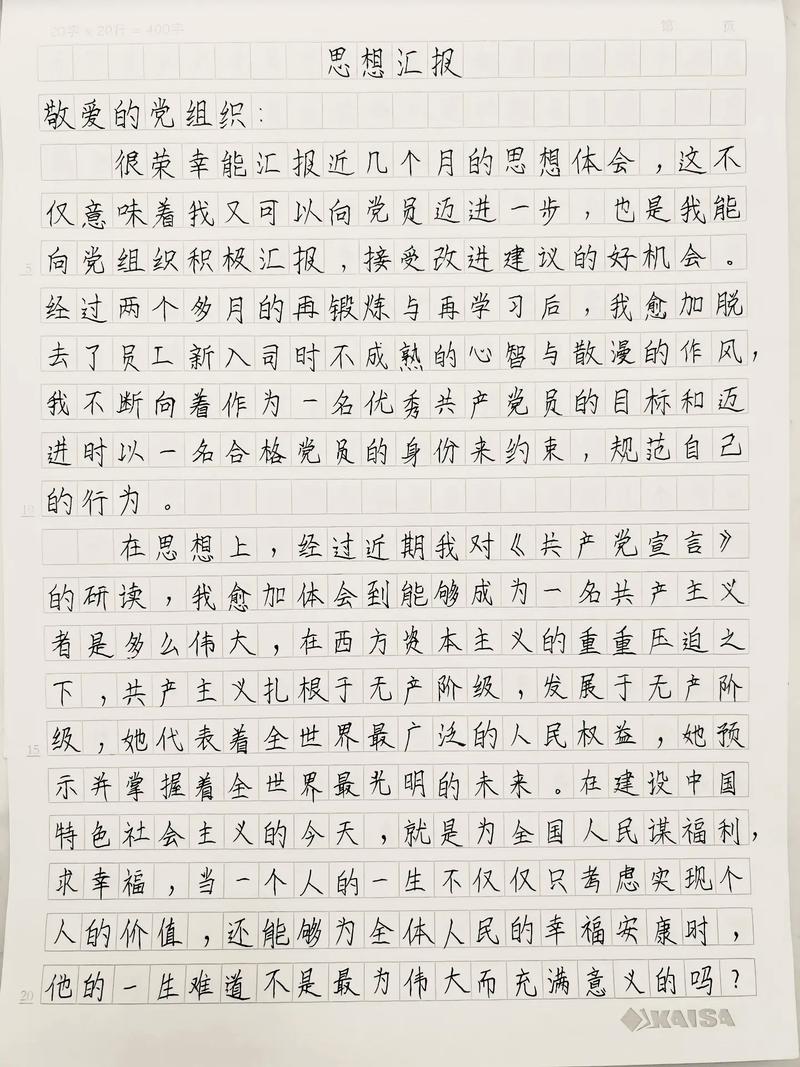 20字×20行=400字 第 页
思想汇报
敬爱的党组织：
很荣幸能汇报近几个月的思想体会，这不
仅意味着我又可以向党员迈进一步，也是我能
5 向党组织积极汇报，接受改进建议的好机会。
经过两个多月的再锻炼与再学习后，我愈加脱
去了员工新入司时不成熟的心智与散漫的作风，
我不断向着作为一名优秀共产党员的目标和迈
进时以一名合格党员的身份来约束，规范自己
10 的行为。
在思想上，经过近期我对《共产党宣言》
的研读，我愈加体会到能够成为一名共产主义
者是多么伟大，在西方资本主义的重重压迫之
下，共产主义扎根于无产阶级，发展于无产阶
15 级，她代表着全世界最广泛的人民权益，她预
示并掌握着全世界最光明的未来。在建设中国
特色社会主义的今天，就是为全国人民谋福利，
求幸福，当一个人的一生不仅仅只考虑实现个
人的价值，还能够为全体人民的幸福安康时，
20 他的一生难道不是最为伟大而充满意义的吗？
KAISA